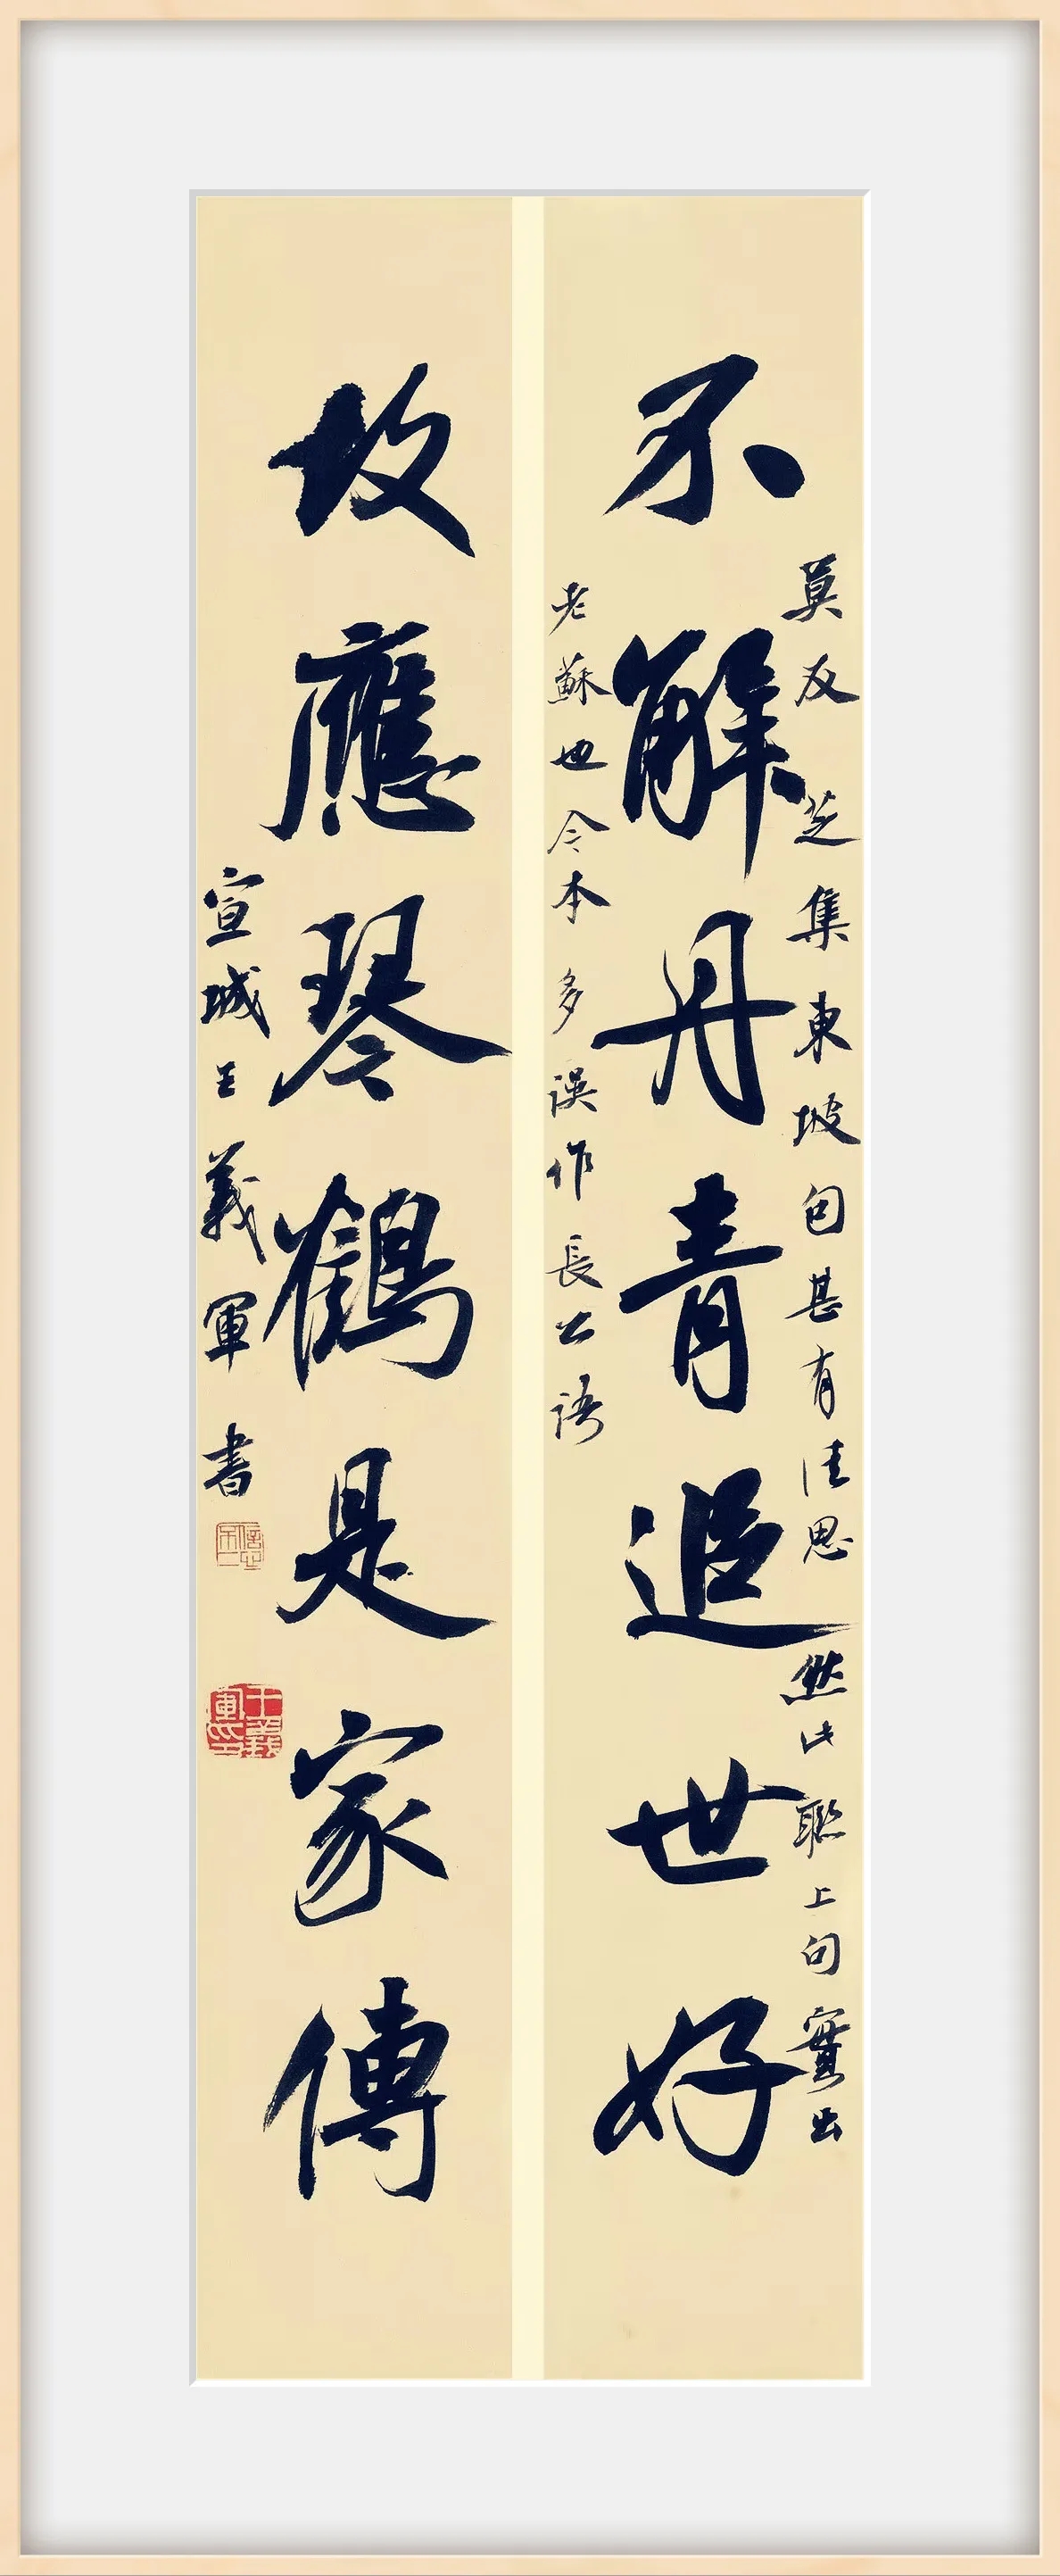 莫友芝集東坡句甚有佳思然此聯上句實出
不解丹青追世好
老蘇也今本多誤作長公語
故應琴鶴是家傳
宣城王義軍書
王義軍印